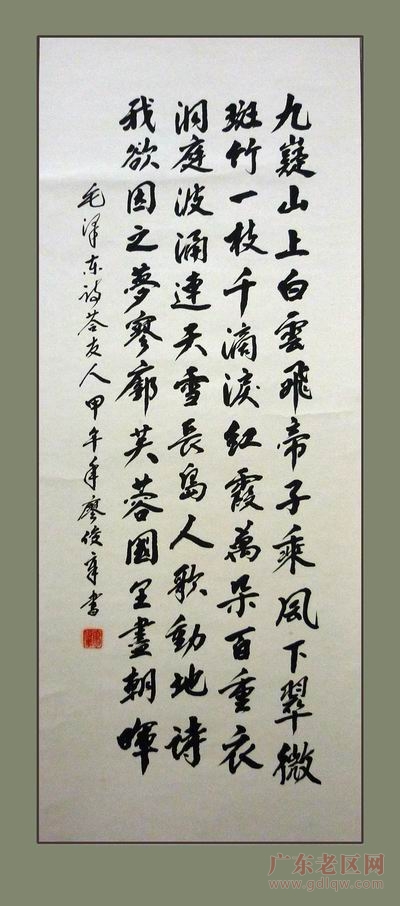 九嶷山上白雲飛帝子乘风下翠微
斑竹一枝千滴淚紅霞萬朵百重衣
洞庭波涌連天雪長島人歌動地詩
我欲因之夢寥廓芙蓉國里盡朝暉
毛泽东诗答友人甲午年廖俊章書
广东老区网
www.gdlqw.com